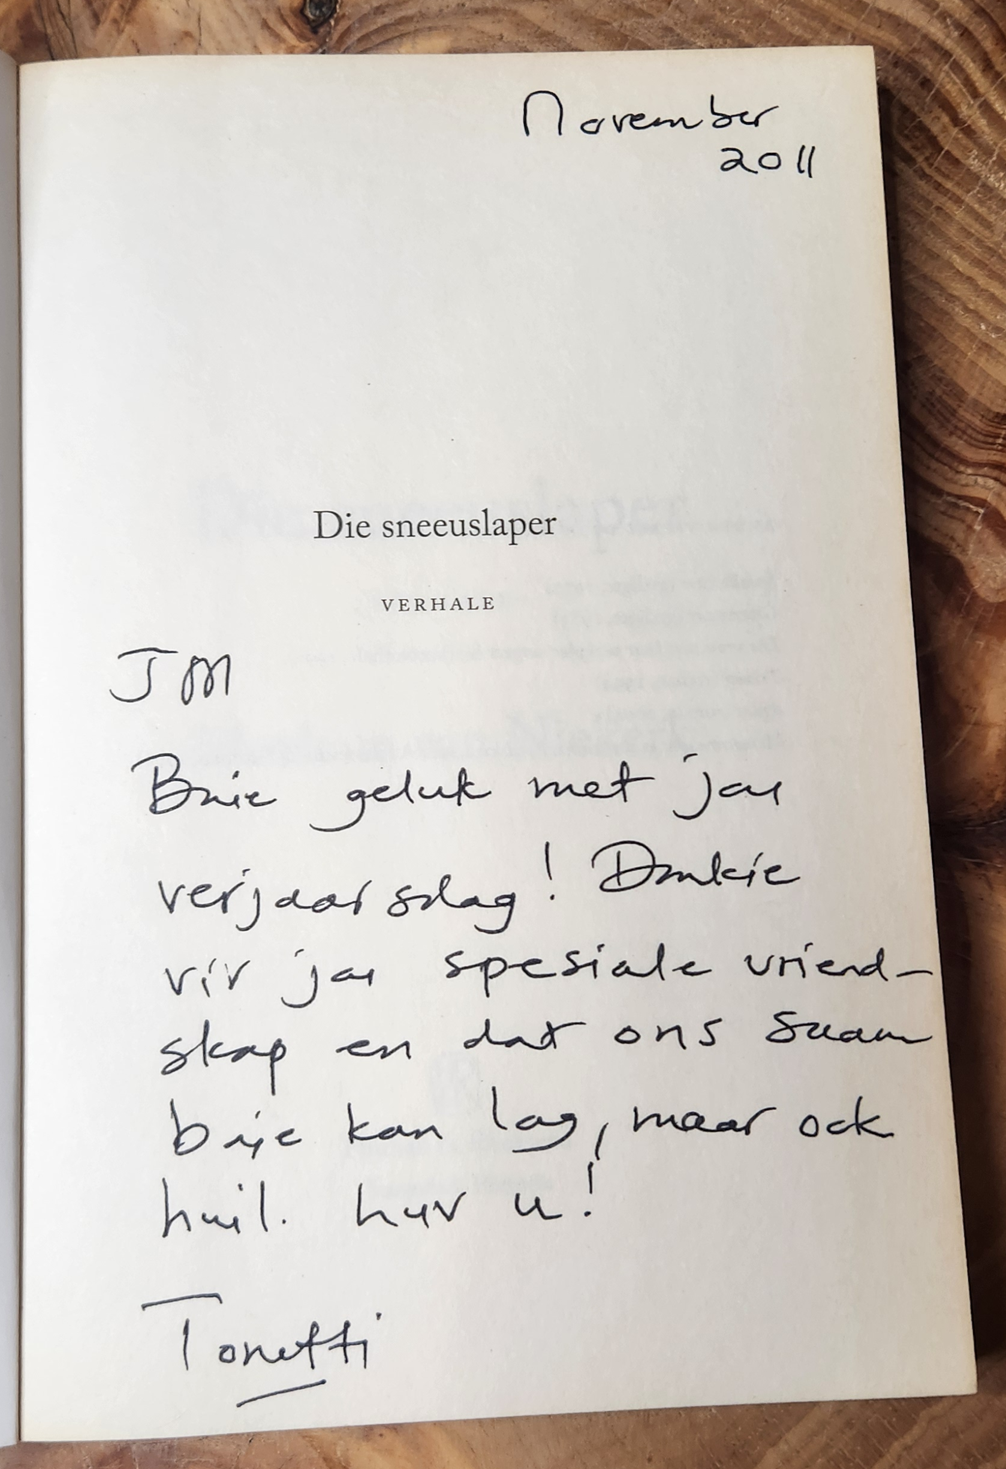 November
2011
Die sneeuslaper
VERHALE
JM
Baie geluk met jou
verjaarsdag! Dankie
vir jou spesiale vriend-
skap en dat ons saam
baie kan lag, maar ook
huil. luv u!
Tonetti